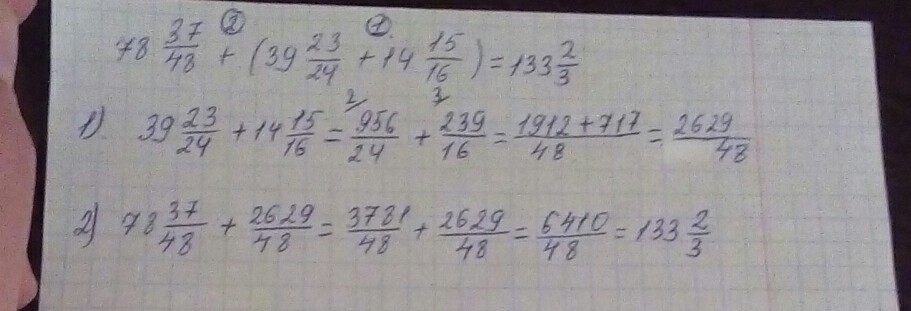 ② ①
78 37/48 + (39 23/24 + 14 15/16) = 133 2/3
1) 39 23/24 + 14 15/16 = 956/24 + 239/16 = (1912 + 717)/48 = 2629/48
2) 78 37/48 + 2629/48 = 3781/48 + 2629/48 = 6410/48 = 133 2/3